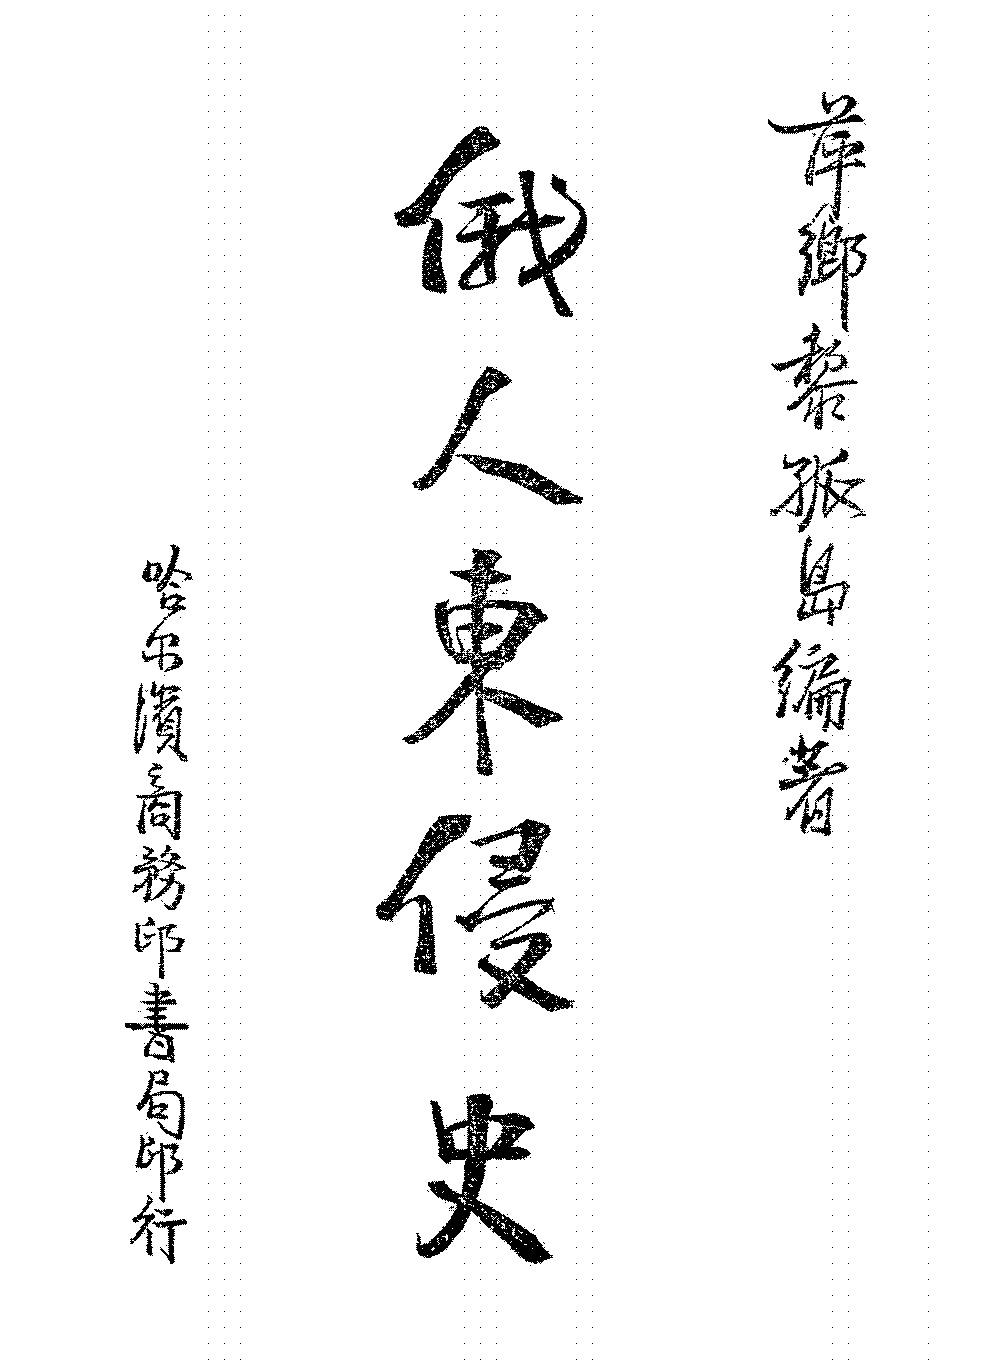 萍鄉黎孤島編著
俄人東侵史
哈尔濱商務印書局印行